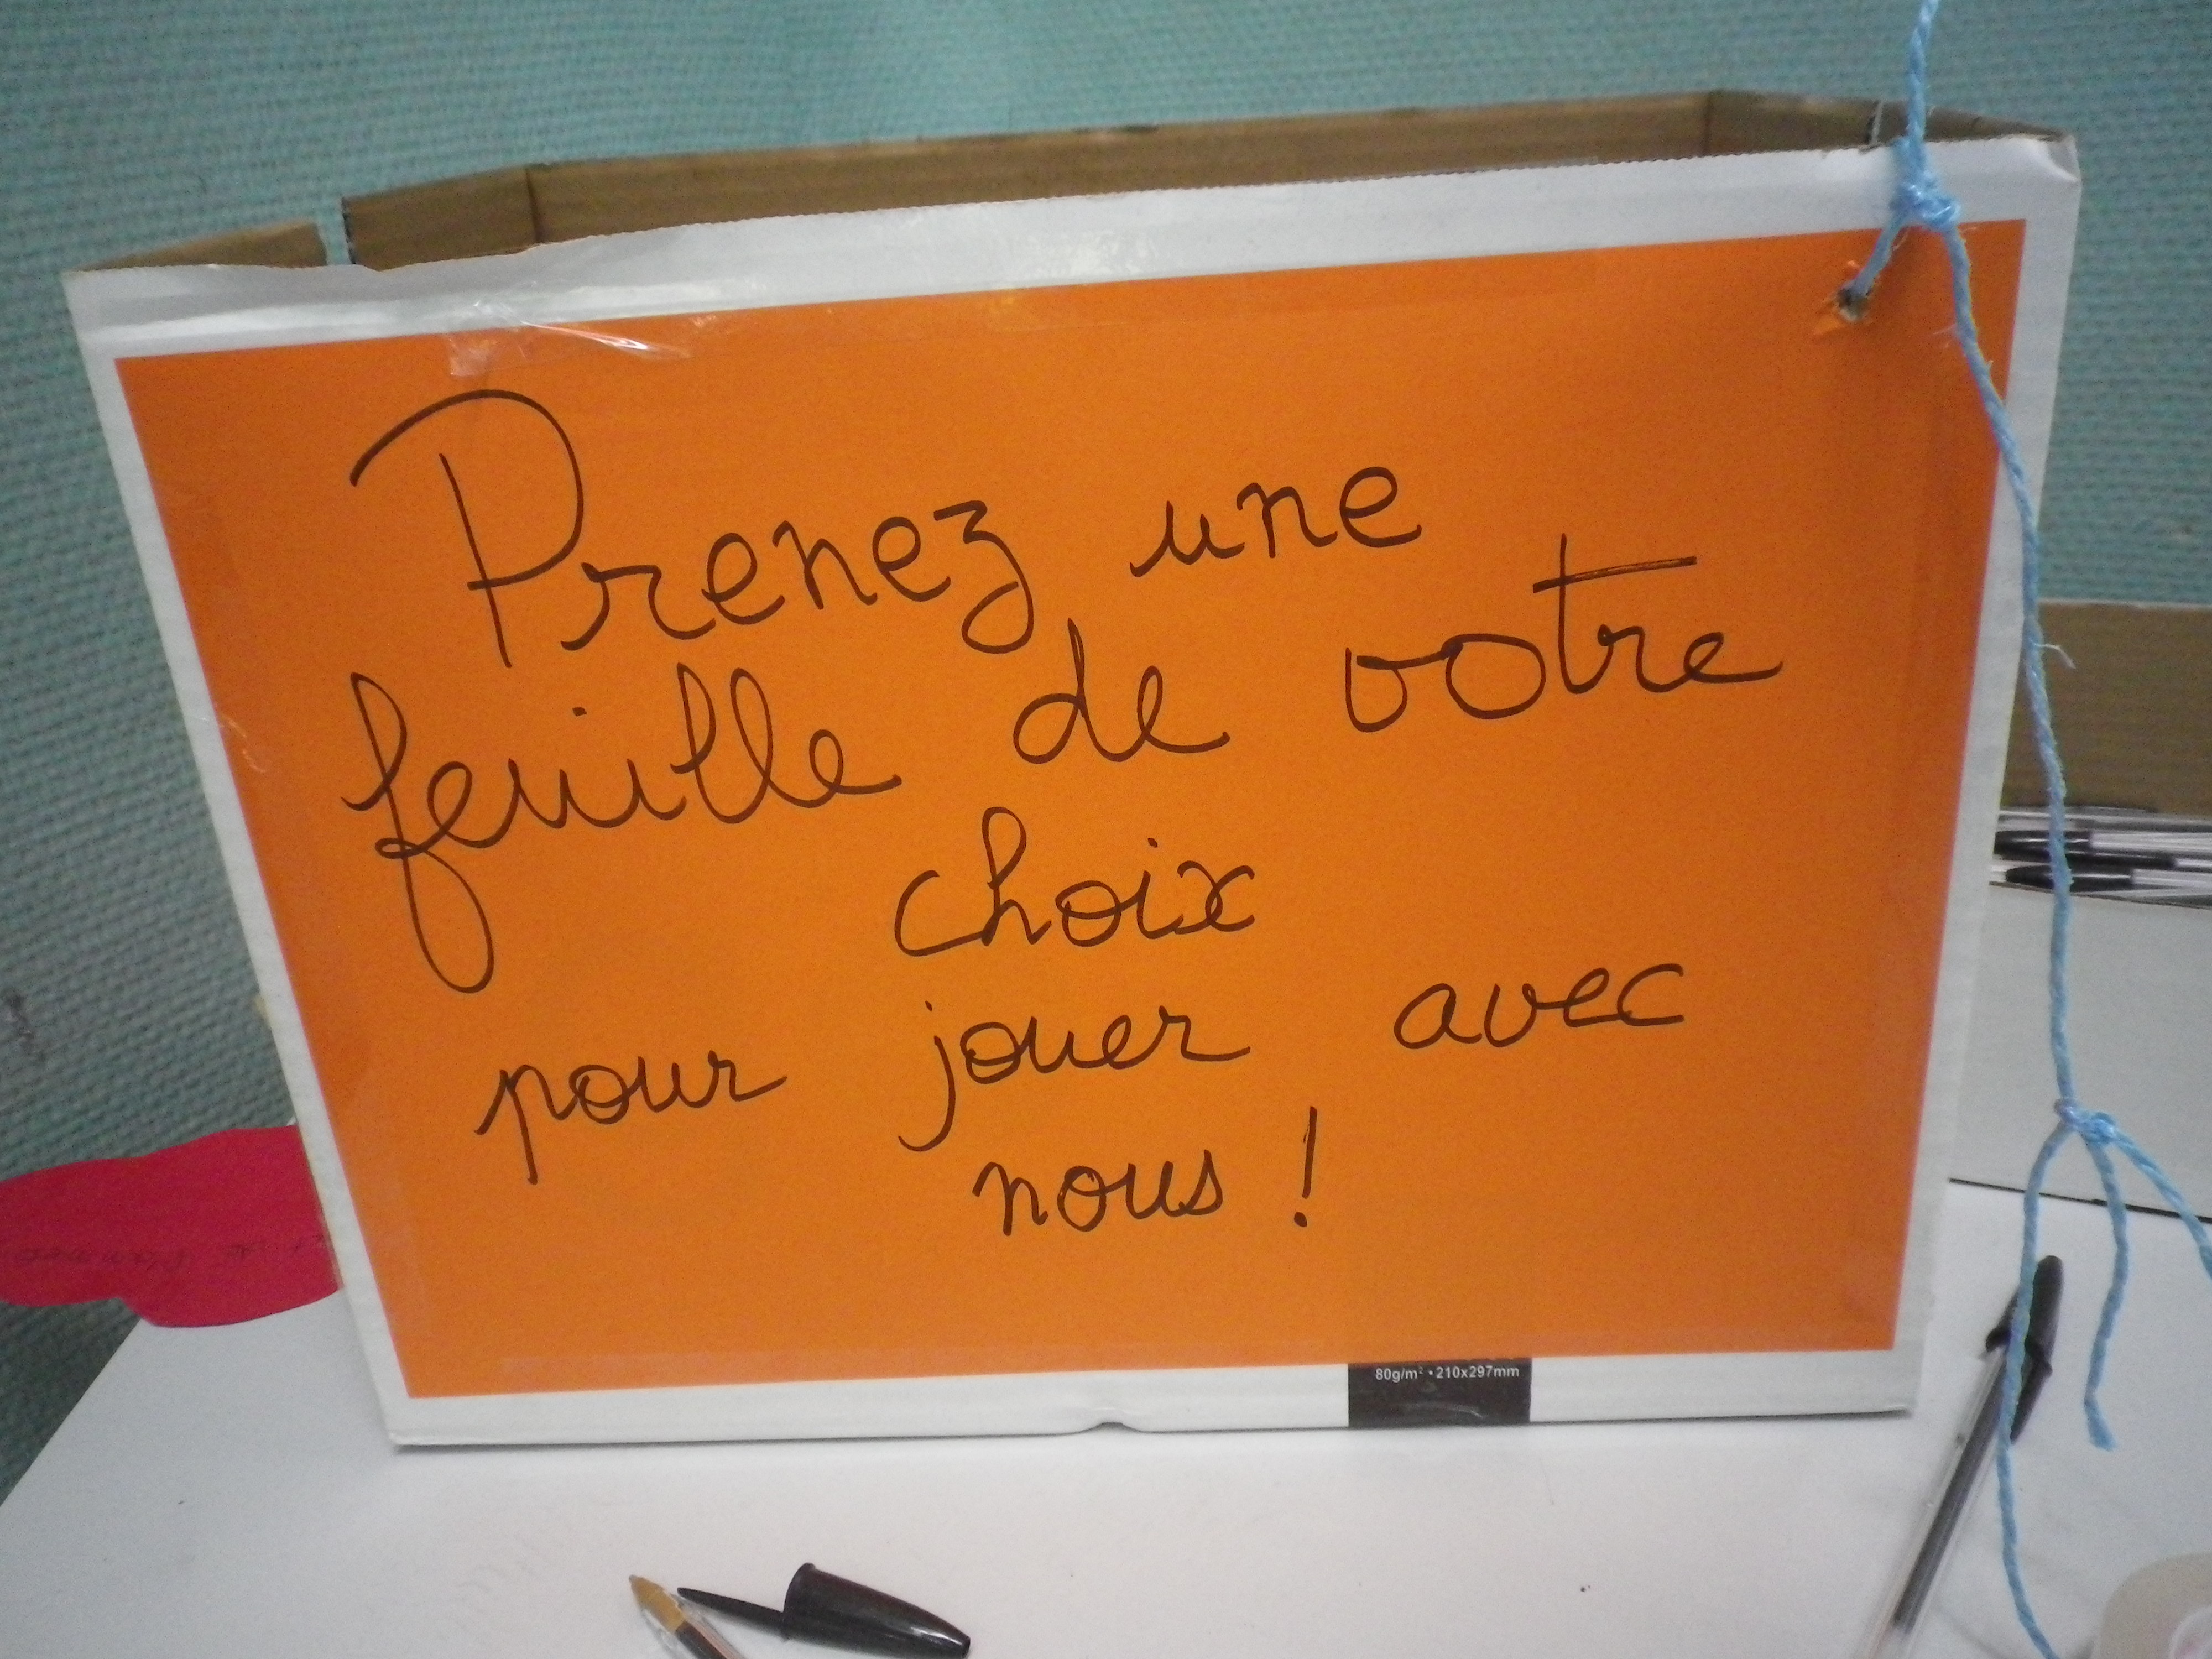 Prenez une
feuille de votre
choix
pour jouer avec
nous !
80g/m² • 210x297mm